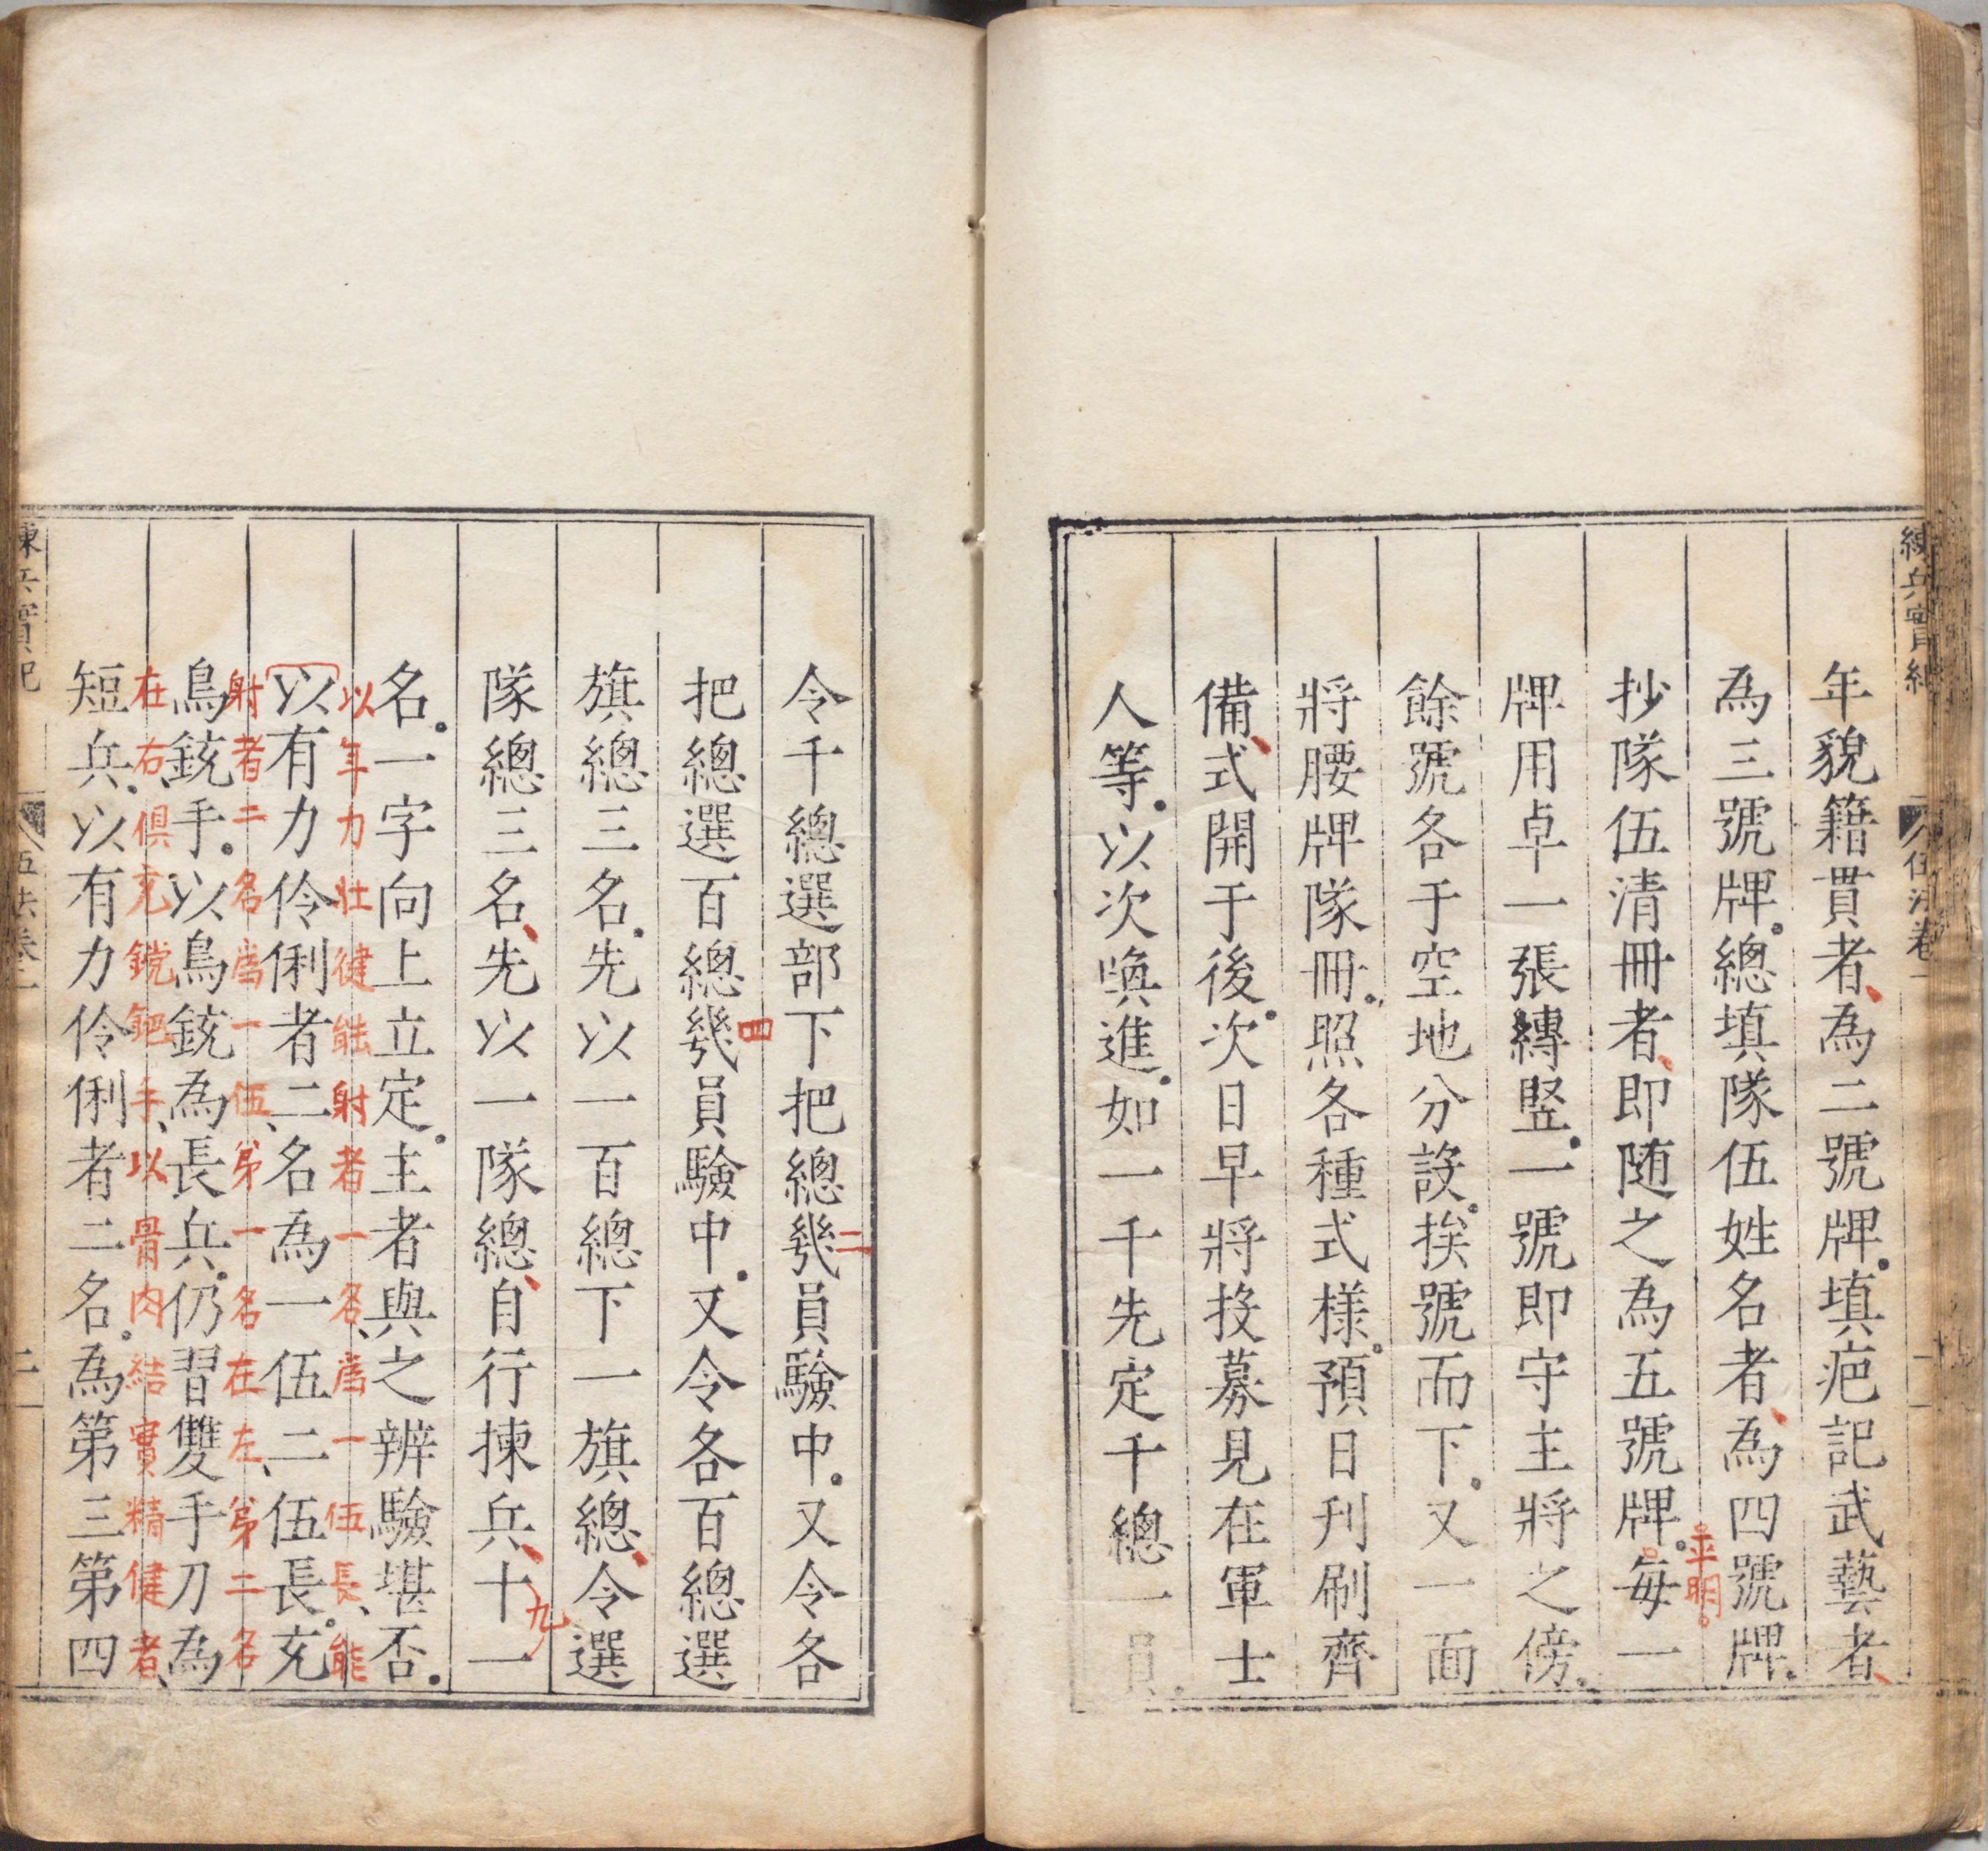 練兵實紀
伍法卷一
年貌籍貫者、為二號牌。填疤記武藝者、
為三號牌。總填隊伍姓名者、為四號牌。
平明。
抄隊伍清冊者、即随之為五號牌。每一
牌用卓一張縳竪。一號即守主將之傍。
餘號各于空地分設。挨號而下。又一面
將腰牌隊冊。照各種式樣。預日刋刷齊
備、式開于後。次日早將投募見在軍士
人等。以次喚進。如一千先定千總一員。
令千總選部下把總幾員驗中。又令各
二
把總選百總幾員驗中。又令各百總選
四
旗總三名。先以一百總下一旗總、令選
隊總三名、先以一隊總、自行揀兵、十一
九
名。一字向上立定。主者與之辨驗堪否。
以年力壮健能射者一名、爲一伍長、能
以有力伶俐者二名為一伍二伍長。充
射者二名爲一伍、第一名在左、第二名
鳥銃手。以鳥銃為長兵。仍習雙手刀為
在右、俱充鎲鈀手、以骨肉結實精健者、
短兵。以有力伶俐者二名。為第三第四
練兵實紀
伍法卷一
二